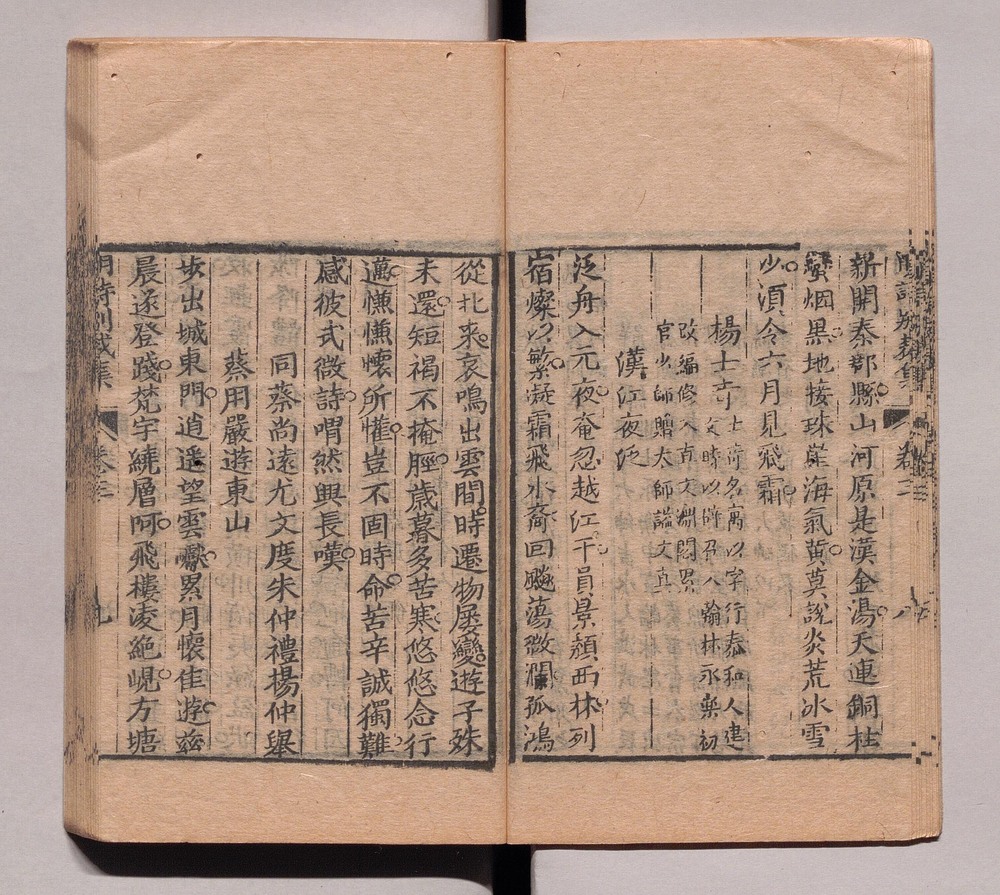 新開秦郡縣山河原是漢金湯天連銅柱
蠻烟黑地接珠崖海氣黃莫說炎荒冰雪
少須令六月見飛霜
楊士奇
士奇名寓以字行泰和人建
文時以辟召入翰林永樂初
改編修入直文淵閣累
官少師贈太師諡文貞
漢江夜泛
泛舟入元夜奄忽越江干員景頹西林列
宿燦以繁凝霜飛水裔回飈蕩微瀾孤鴻
從北來哀鳴出雲間時遷物屢變遊子殊
未還短褐不掩脛歲暮多苦寒悠悠念行
邁慊慊懷所懽豈不固時命苦辛誠獨難
感彼式微詩喟然興長嘆
同蔡尚遠尤文度朱仲禮楊仲舉
蔡用嚴遊東山
步出城東門逍遥望雲巘累月懷佳遊茲
晨遂登踐梵宇繞層阿飛樓凌絕峴方塘
明詩別裁集
卷三
九